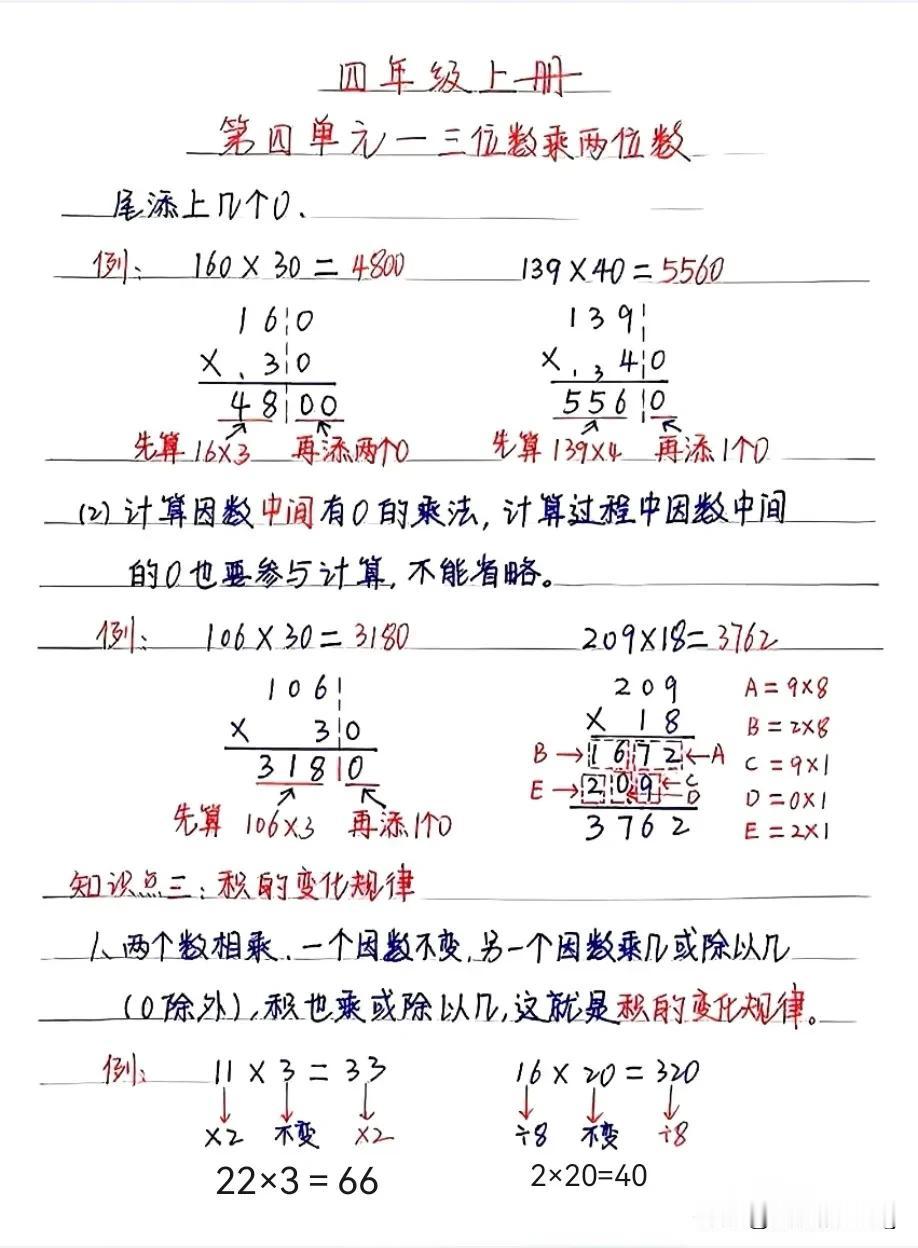 四年级上册
第四单元一三位数乘两位数
尾添上几个0.
例: 160×30=4800 139×40=5560
160 139
×.30 ×.340
4800 5560
先算16×3 再添两个0 先算139×4 再添1个0
(2)计算因数中间有0的乘法,计算过程中因数中间
的0也要参与计算,不能省略。
例: 106×30=3180 209×18=3762
106 209 A=9×8
×30 ×18 B=2×8
3180 B→1672←A C=9×1
先算106×3 再添1个0 E→209←C D D=0×1
3762 E=2×1
知识点三:积的变化规律
1、两个数相乘.一个因数不变,另一个因数乘几或除以几
(0除外),积也乘或除以几,这就是积的变化规律。
例: 11×3=33 16×20=320
×2 不变 ×2 ÷8 不变 ÷8
22×3=66 2×20=40